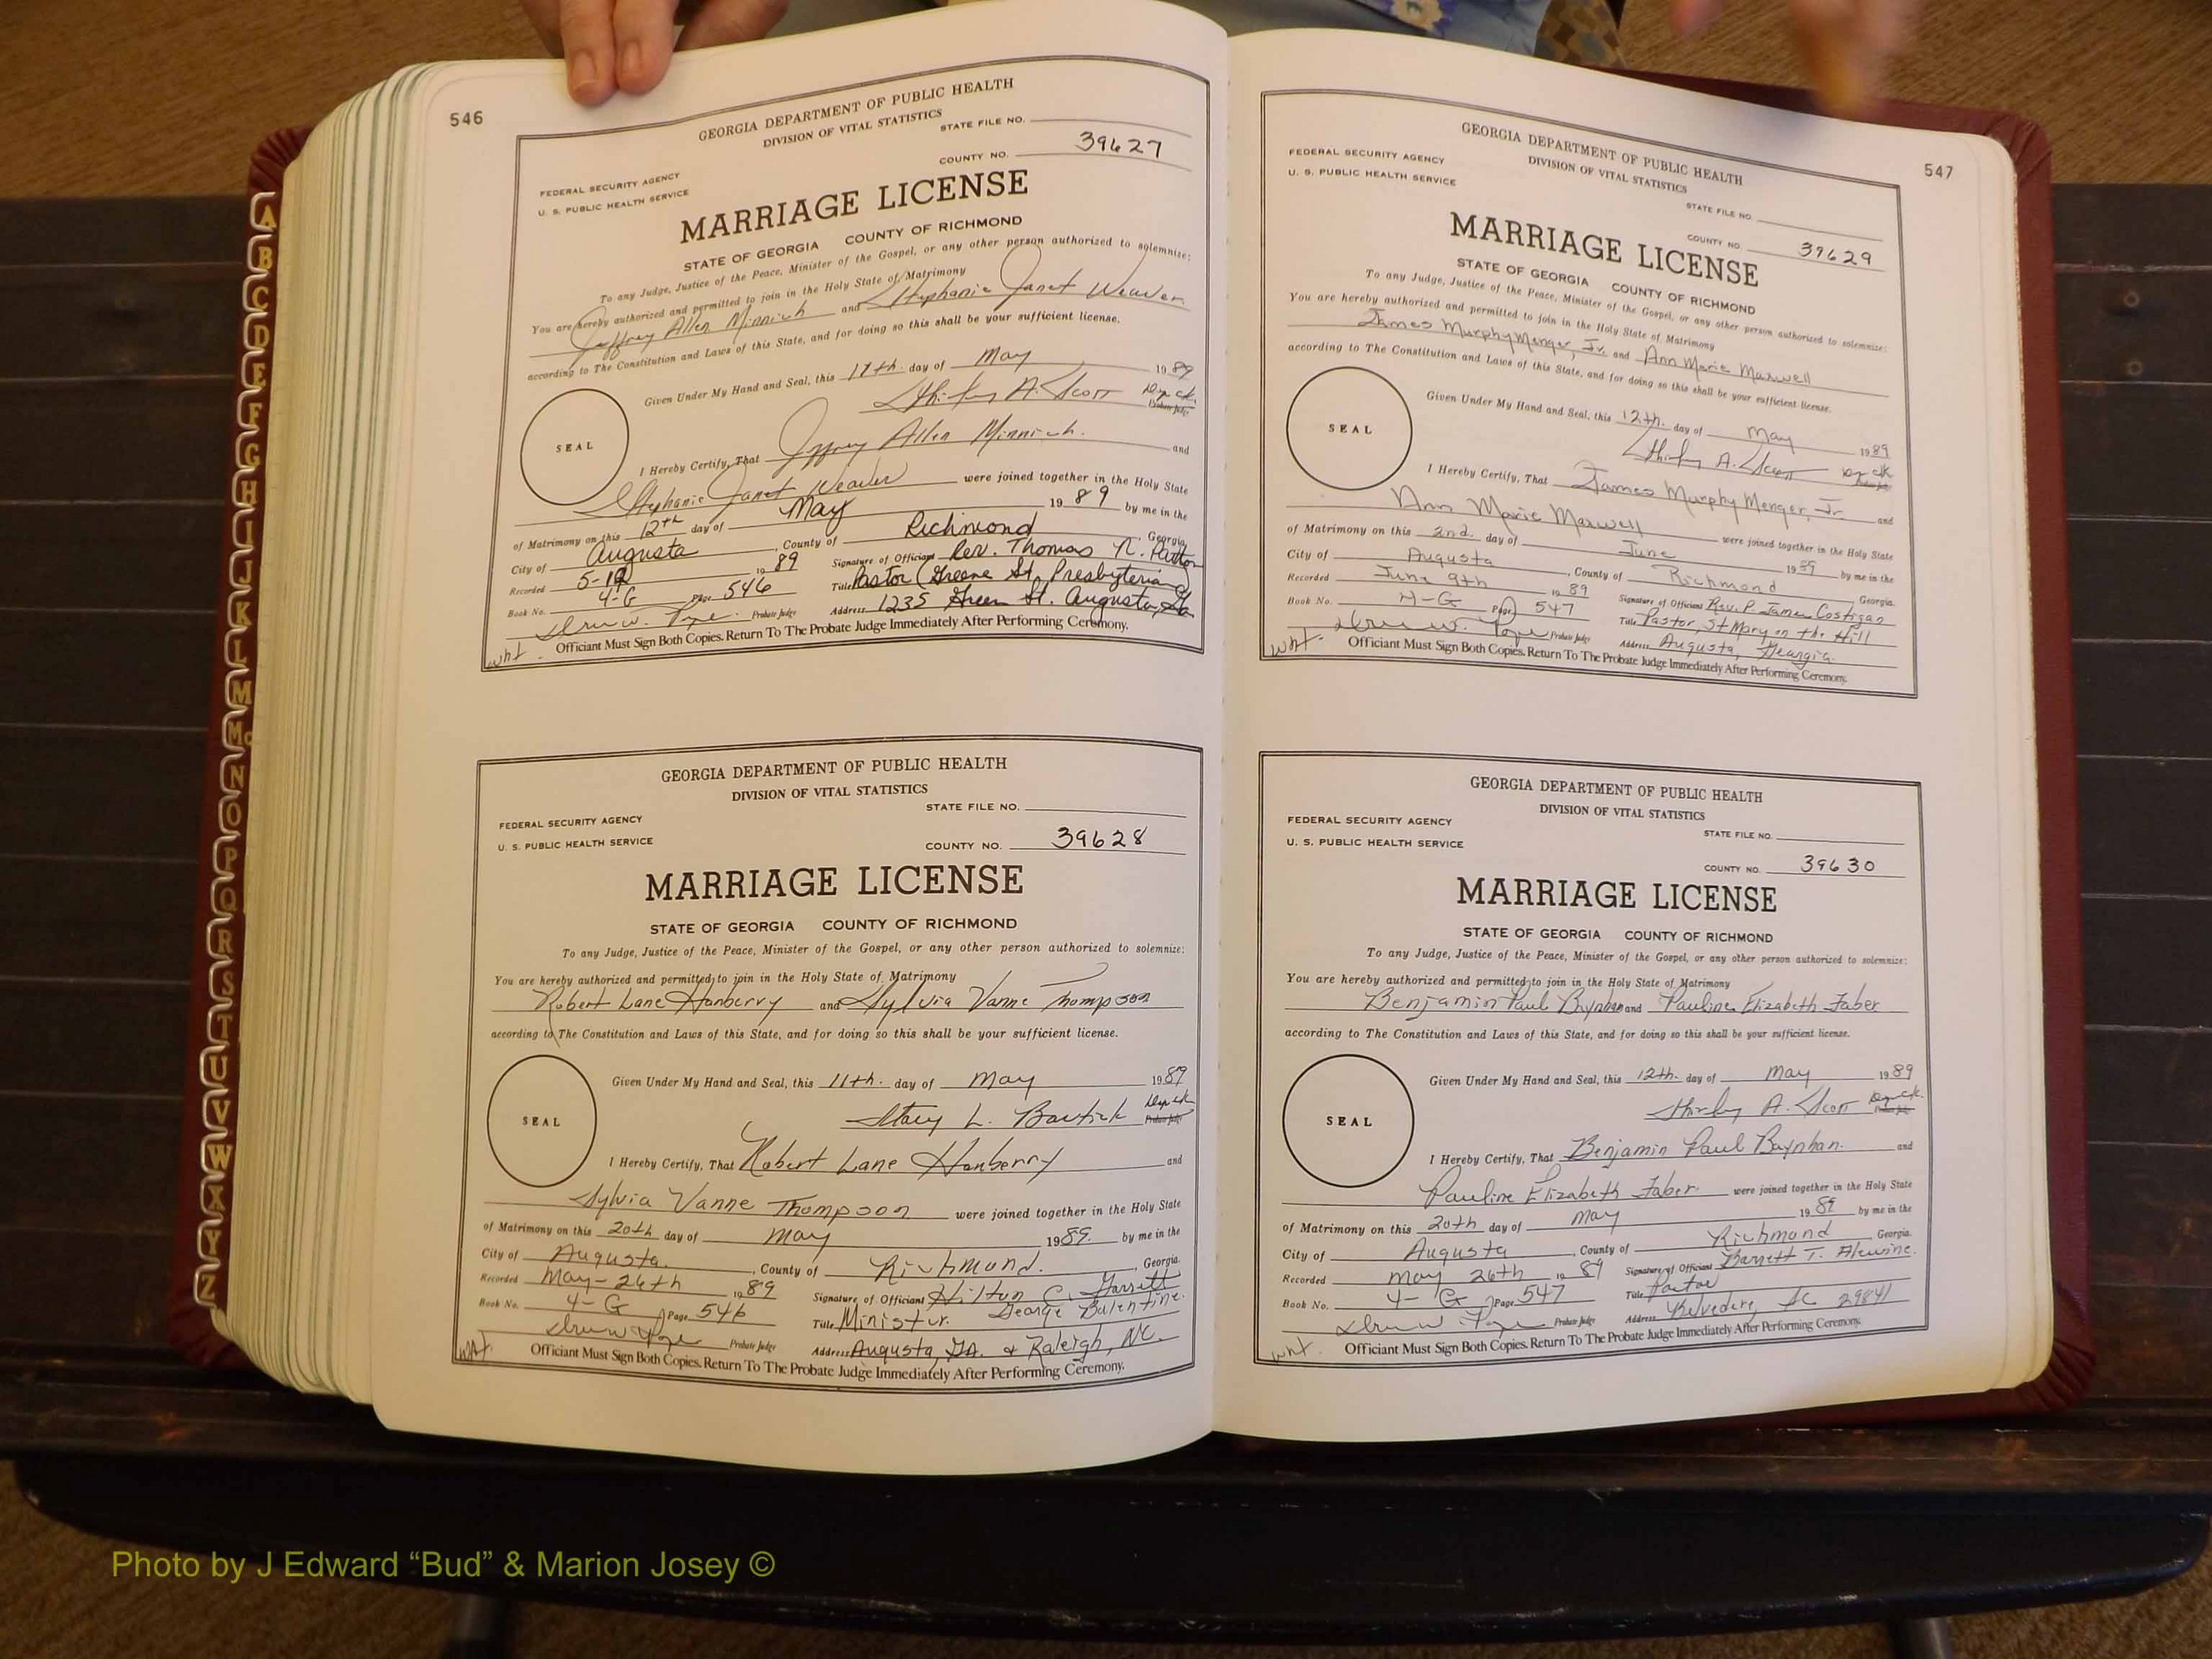 546
GEORGIA DEPARTMENT OF PUBLIC HEALTH
DIVISION OF VITAL STATISTICS
STATE FILE NO.
FEDERAL SECURITY AGENCY
U. S. PUBLIC HEALTH SERVICE
COUNTY NO. 39627
MARRIAGE LICENSE
STATE OF GEORGIA COUNTY OF RICHMOND
To any Judge, Justice of the Peace, Minister of the Gospel, or any other person authorized to solemnize:
You are hereby authorized and permitted to join in the Holy State of Matrimony
Jeffrey Allen Minnich and Stephanie Janet Weaver
according to The Constitution and Laws of this State, and for doing so this shall be your sufficient license.
Given Under My Hand and Seal, this 11th. day of May 1989
Shirley A. Scott Dep Clk.
Probate Judge
SEAL
I Hereby Certify, That Jeffrey Allen Minnich. and
Stephanie Janet Weaver were joined together in the Holy State
of Matrimony on this 12th day of May 1989 by me in the
City of Augusta, County of Richmond, Georgia.
Recorded 5-19 1989 Signature of Officiant Rev. Thomas N. Patton
Book No. 4-G Page 546 Title Pastor (Greene St. Presbyterian)
Probate Judge Address 1235 Green St. Augusta, Ga
wht. Officiant Must Sign Both Copies. Return To The Probate Judge Immediately After Performing Ceremony.
GEORGIA DEPARTMENT OF PUBLIC HEALTH
DIVISION OF VITAL STATISTICS
STATE FILE NO.
FEDERAL SECURITY AGENCY
U. S. PUBLIC HEALTH SERVICE
COUNTY NO. 39628
MARRIAGE LICENSE
STATE OF GEORGIA COUNTY OF RICHMOND
To any Judge, Justice of the Peace, Minister of the Gospel, or any other person authorized to solemnize:
You are hereby authorized and permitted to join in the Holy State of Matrimony
Robert Lane Hanberry and Sylvia Vanne Thompson
according to The Constitution and Laws of this State, and for doing so this shall be your sufficient license.
Given Under My Hand and Seal, this 11th. day of May 1989
Stacy L. Bostick Dep Clk
Probate Judge
SEAL
I Hereby Certify, That Robert Lane Hanberry and
Sylvia Vanne Thompson were joined together in the Holy State
of Matrimony on this 20th day of May 1989. by me in the
City of Augusta., County of Richmond., Georgia.
Recorded May-26th 1989 Signature of Officiant Hilton C. Garrett
George Balentine.
Book No. 4-G Page 546 Title Minister.
Probate Judge Address Augusta, GA. & Raleigh, NC.
wht. Officiant Must Sign Both Copies. Return To The Probate Judge Immediately After Performing Ceremony.
547
GEORGIA DEPARTMENT OF PUBLIC HEALTH
DIVISION OF VITAL STATISTICS
FEDERAL SECURITY AGENCY
U. S. PUBLIC HEALTH SERVICE
STATE FILE NO.
COUNTY NO. 39629
MARRIAGE LICENSE
STATE OF GEORGIA COUNTY OF RICHMOND
To any Judge, Justice of the Peace, Minister of the Gospel, or any other person authorized to solemnize:
You are hereby authorized and permitted to join in the Holy State of Matrimony
James Murphy Menger, Jr. and Ann Marie Maxwell
according to The Constitution and Laws of this State, and for doing so this shall be your sufficient license.
Given Under My Hand and Seal, this 12th. day of May 1989
Shirley A. Scott Dep Clk
SEAL
I Hereby Certify, That James Murphy Menger, Jr. and
Ann Marie Maxwell were joined together in the Holy State
of Matrimony on this 2nd. day of June 1989 by me in the
City of Augusta, County of Richmond Georgia.
Recorded June 9th 1989 Signature of Officiant Rev. P. James Costigan
Book No. 4-G Page 547 Title Pastor, St Mary on the Hill
Probate Judge Address Augusta, Georgia.
wht. Officiant Must Sign Both Copies. Return To The Probate Judge Immediately After Performing Ceremony.
GEORGIA DEPARTMENT OF PUBLIC HEALTH
DIVISION OF VITAL STATISTICS
FEDERAL SECURITY AGENCY
STATE FILE NO.
U. S. PUBLIC HEALTH SERVICE
COUNTY NO. 39630
MARRIAGE LICENSE
STATE OF GEORGIA COUNTY OF RICHMOND
To any Judge, Justice of the Peace, Minister of the Gospel, or any other person authorized to solemnize:
You are hereby authorized and permitted to join in the Holy State of Matrimony
Benjamin Paul Baynham and Pauline Elizabeth Faber
according to The Constitution and Laws of this State, and for doing so this shall be your sufficient license.
Given Under My Hand and Seal, this 12th. day of May 1989
Shirley A. Scott Dep Clk.
Probate Judge
SEAL
I Hereby Certify, That Benjamin Paul Baynham. and
Pauline Elizabeth Faber. were joined together in the Holy State
of Matrimony on this 20th day of May 1989 by me in the
City of Augusta, County of Richmond Georgia.
Recorded May 26th 1989 Signature of Officiant Barrett T. Alewine.
Book No. 4-G Page 547 Title Pastor
Probate Judge Address Belvedere, SC 29841
wht. Officiant Must Sign Both Copies. Return To The Probate Judge Immediately After Performing Ceremony.
A
B
C
D
E
F
G
H
I
J
K
L
M
Mc
N
O
P
Q
R
S
T
U
V
W
X
Y
Z
Photo by J Edward “Bud” & Marion Josey ©